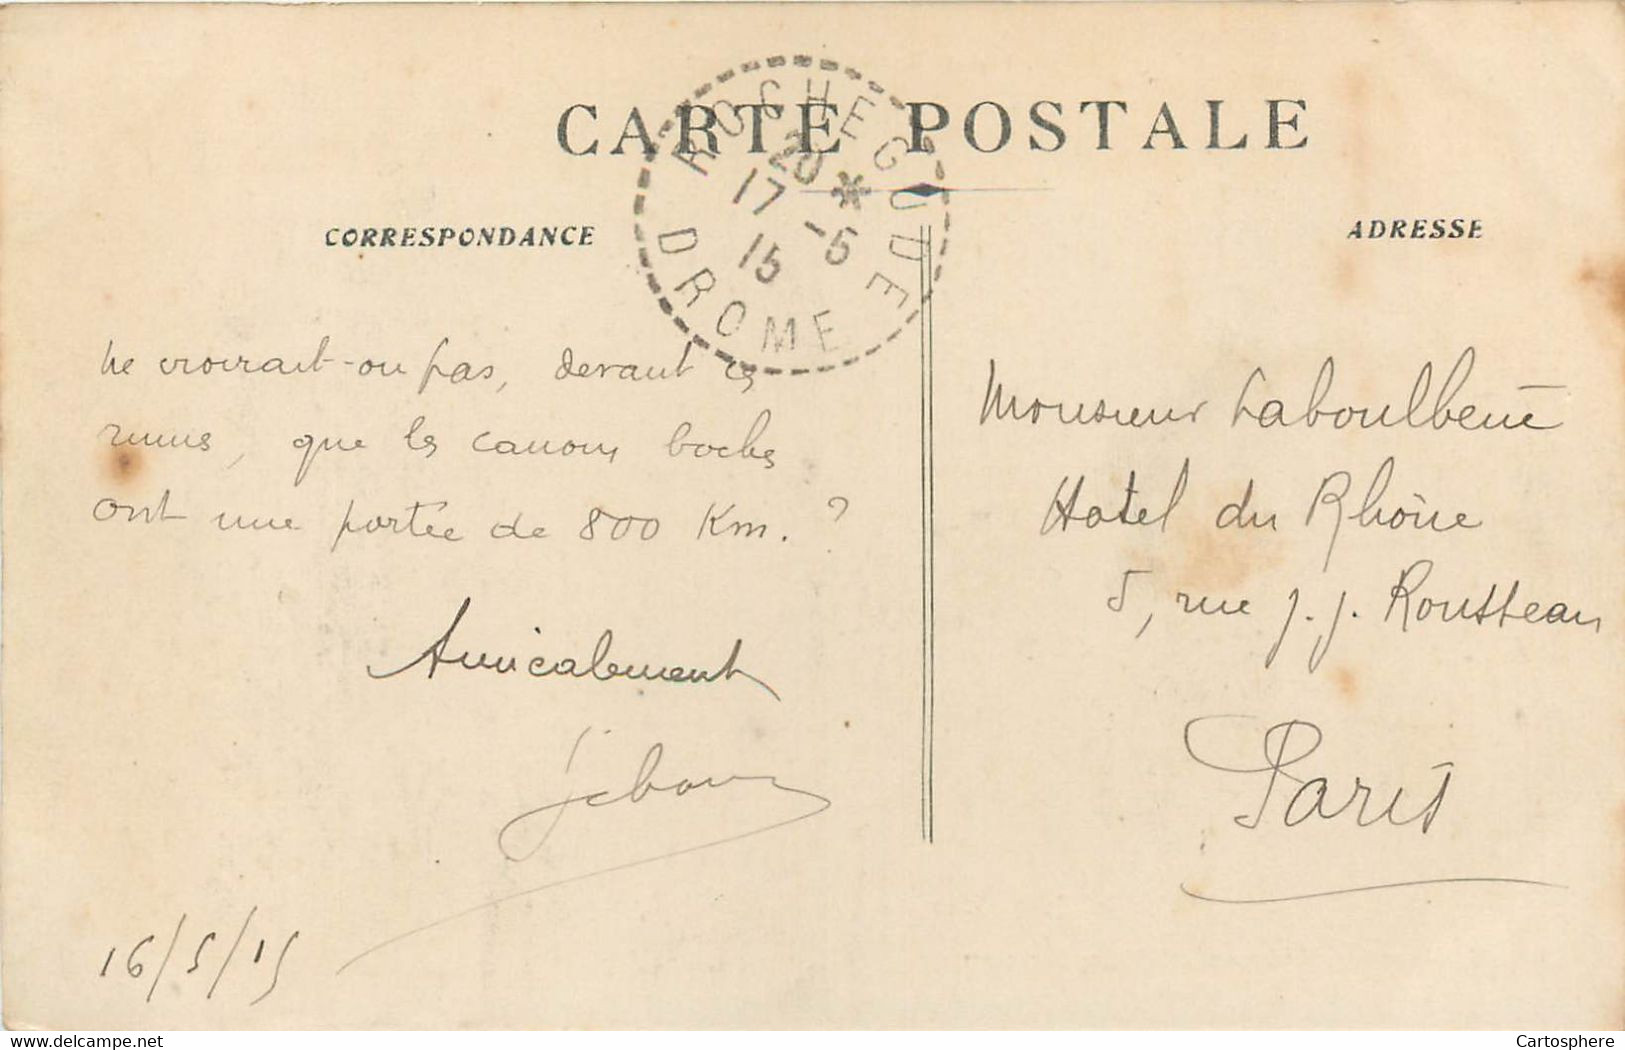 CARTE POSTALE
ROCHEGUDE
20 *
17 -5
15
DROME
CORRESPONDANCE
ADRESSE
Ne croirait-on pas, devant ces
ruines, que les canons boches
ont une portée de 800 Km. ?
Amicalement
16/5/15
Monsieur Laboulbène
Hotel du Rhône
5, rue J. J. Rousseau
Paris
www.delcampe.net
Cartosphere